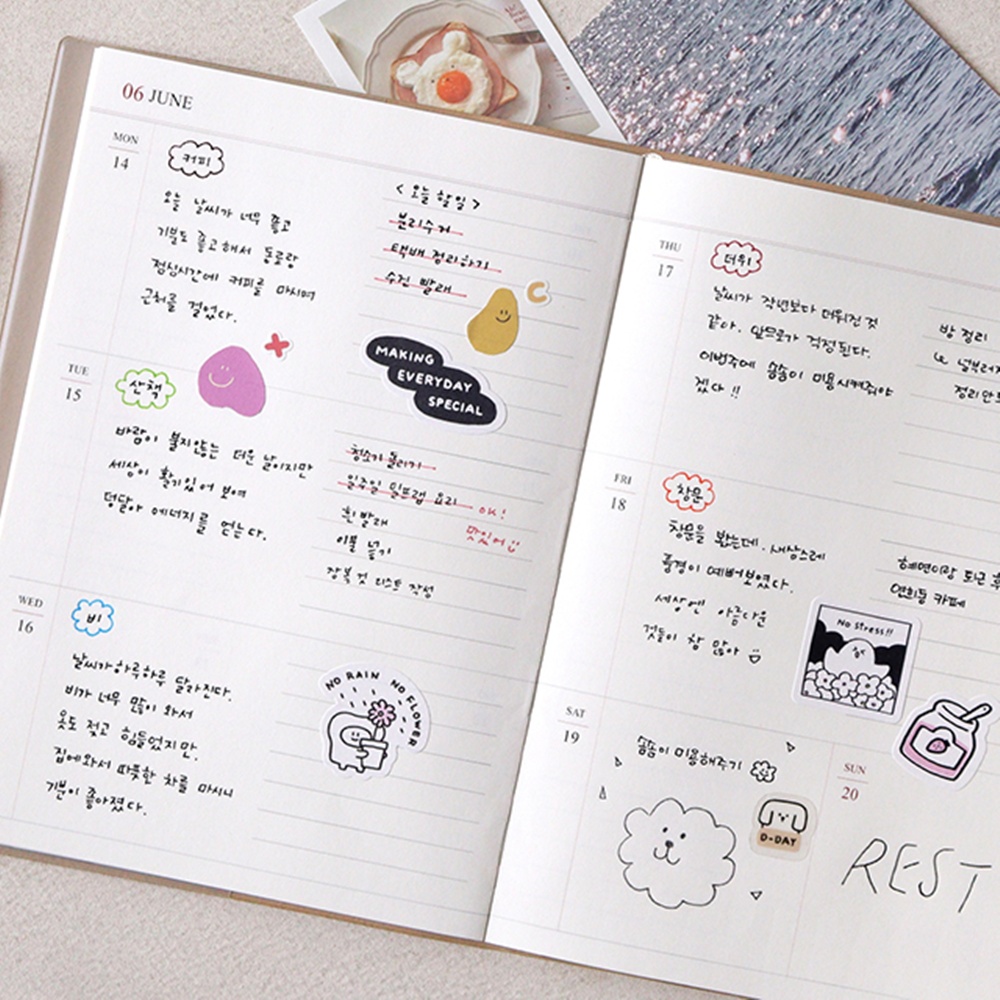 06 JUNE
MON
14
커피
오늘 날씨가 너무 좋고
기분도 좋고해서 동료랑
점심시간에 커피를 마시며
근처를 걸었다.
< 오늘 할일 >
분리수거
택배 정리하기
수건 빨래
C
MAKING
EVERYDAY
SPECIAL
TUE
15
산책
바람이 불지않는 더운 날이지만
세상이 활기있어 보여
덩달아 에너지를 얻는다.
청소기 돌리기
일주일 밀프랩 요리 OK!
맛있어
흰 빨래
이불 널기
장볼 것 리스트 작성
WED
16
비
날씨가하루하루 달라진다.
비가 너무 많이 와서
옷도 젖고 힘들었지만.
집에와서 따뜻한 차를 마시니
기분이 좋아졌다.
NO RAIN NO FLOWER
THU
17
더위
날씨가 작년보다 더워진 것
같아. 앞므로가 걱정된다.
이번주에 솜솜이 미용시켜줘야
겠다 !!
방 정리
널부러져
정리안
FRI
18
창문
창문을 봤는데. 새삼스레
풍경이 예뻐보였다.
세상엔 아름다운
것들이 참 많아
혜연이랑 퇴근 후
연희동 카페
No stress!!
SAT
19
솜솜이 미용해주기
D-DAY
SUN
20
REST